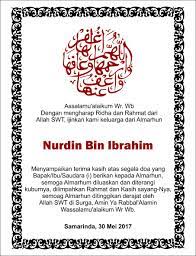 Assalamu'alaikum Wr. Wb
Dengan mengharap Ridha dan Rahmat dari
Allah SWT, ijinkan kami keluarga dari Almarhum
Nurdin Bin Ibrahim
Menyampaikan terima kasih atas segala doa yang
Bapak/Ibu/Saudara (i) berikan kepada Almarhum,
semoga Almarhum diluaskan dan diterangi
kuburnya, dilimpahkan Rahmat dan Kasih sayang-Nya,
semoga Almarhum ditinggikan derajat oleh
Allah SWT di Surga, Amin Ya Rabbal'Alamin
Wassalamu'alaikum Wr. Wb.
Samarinda, 30 Mei 2017